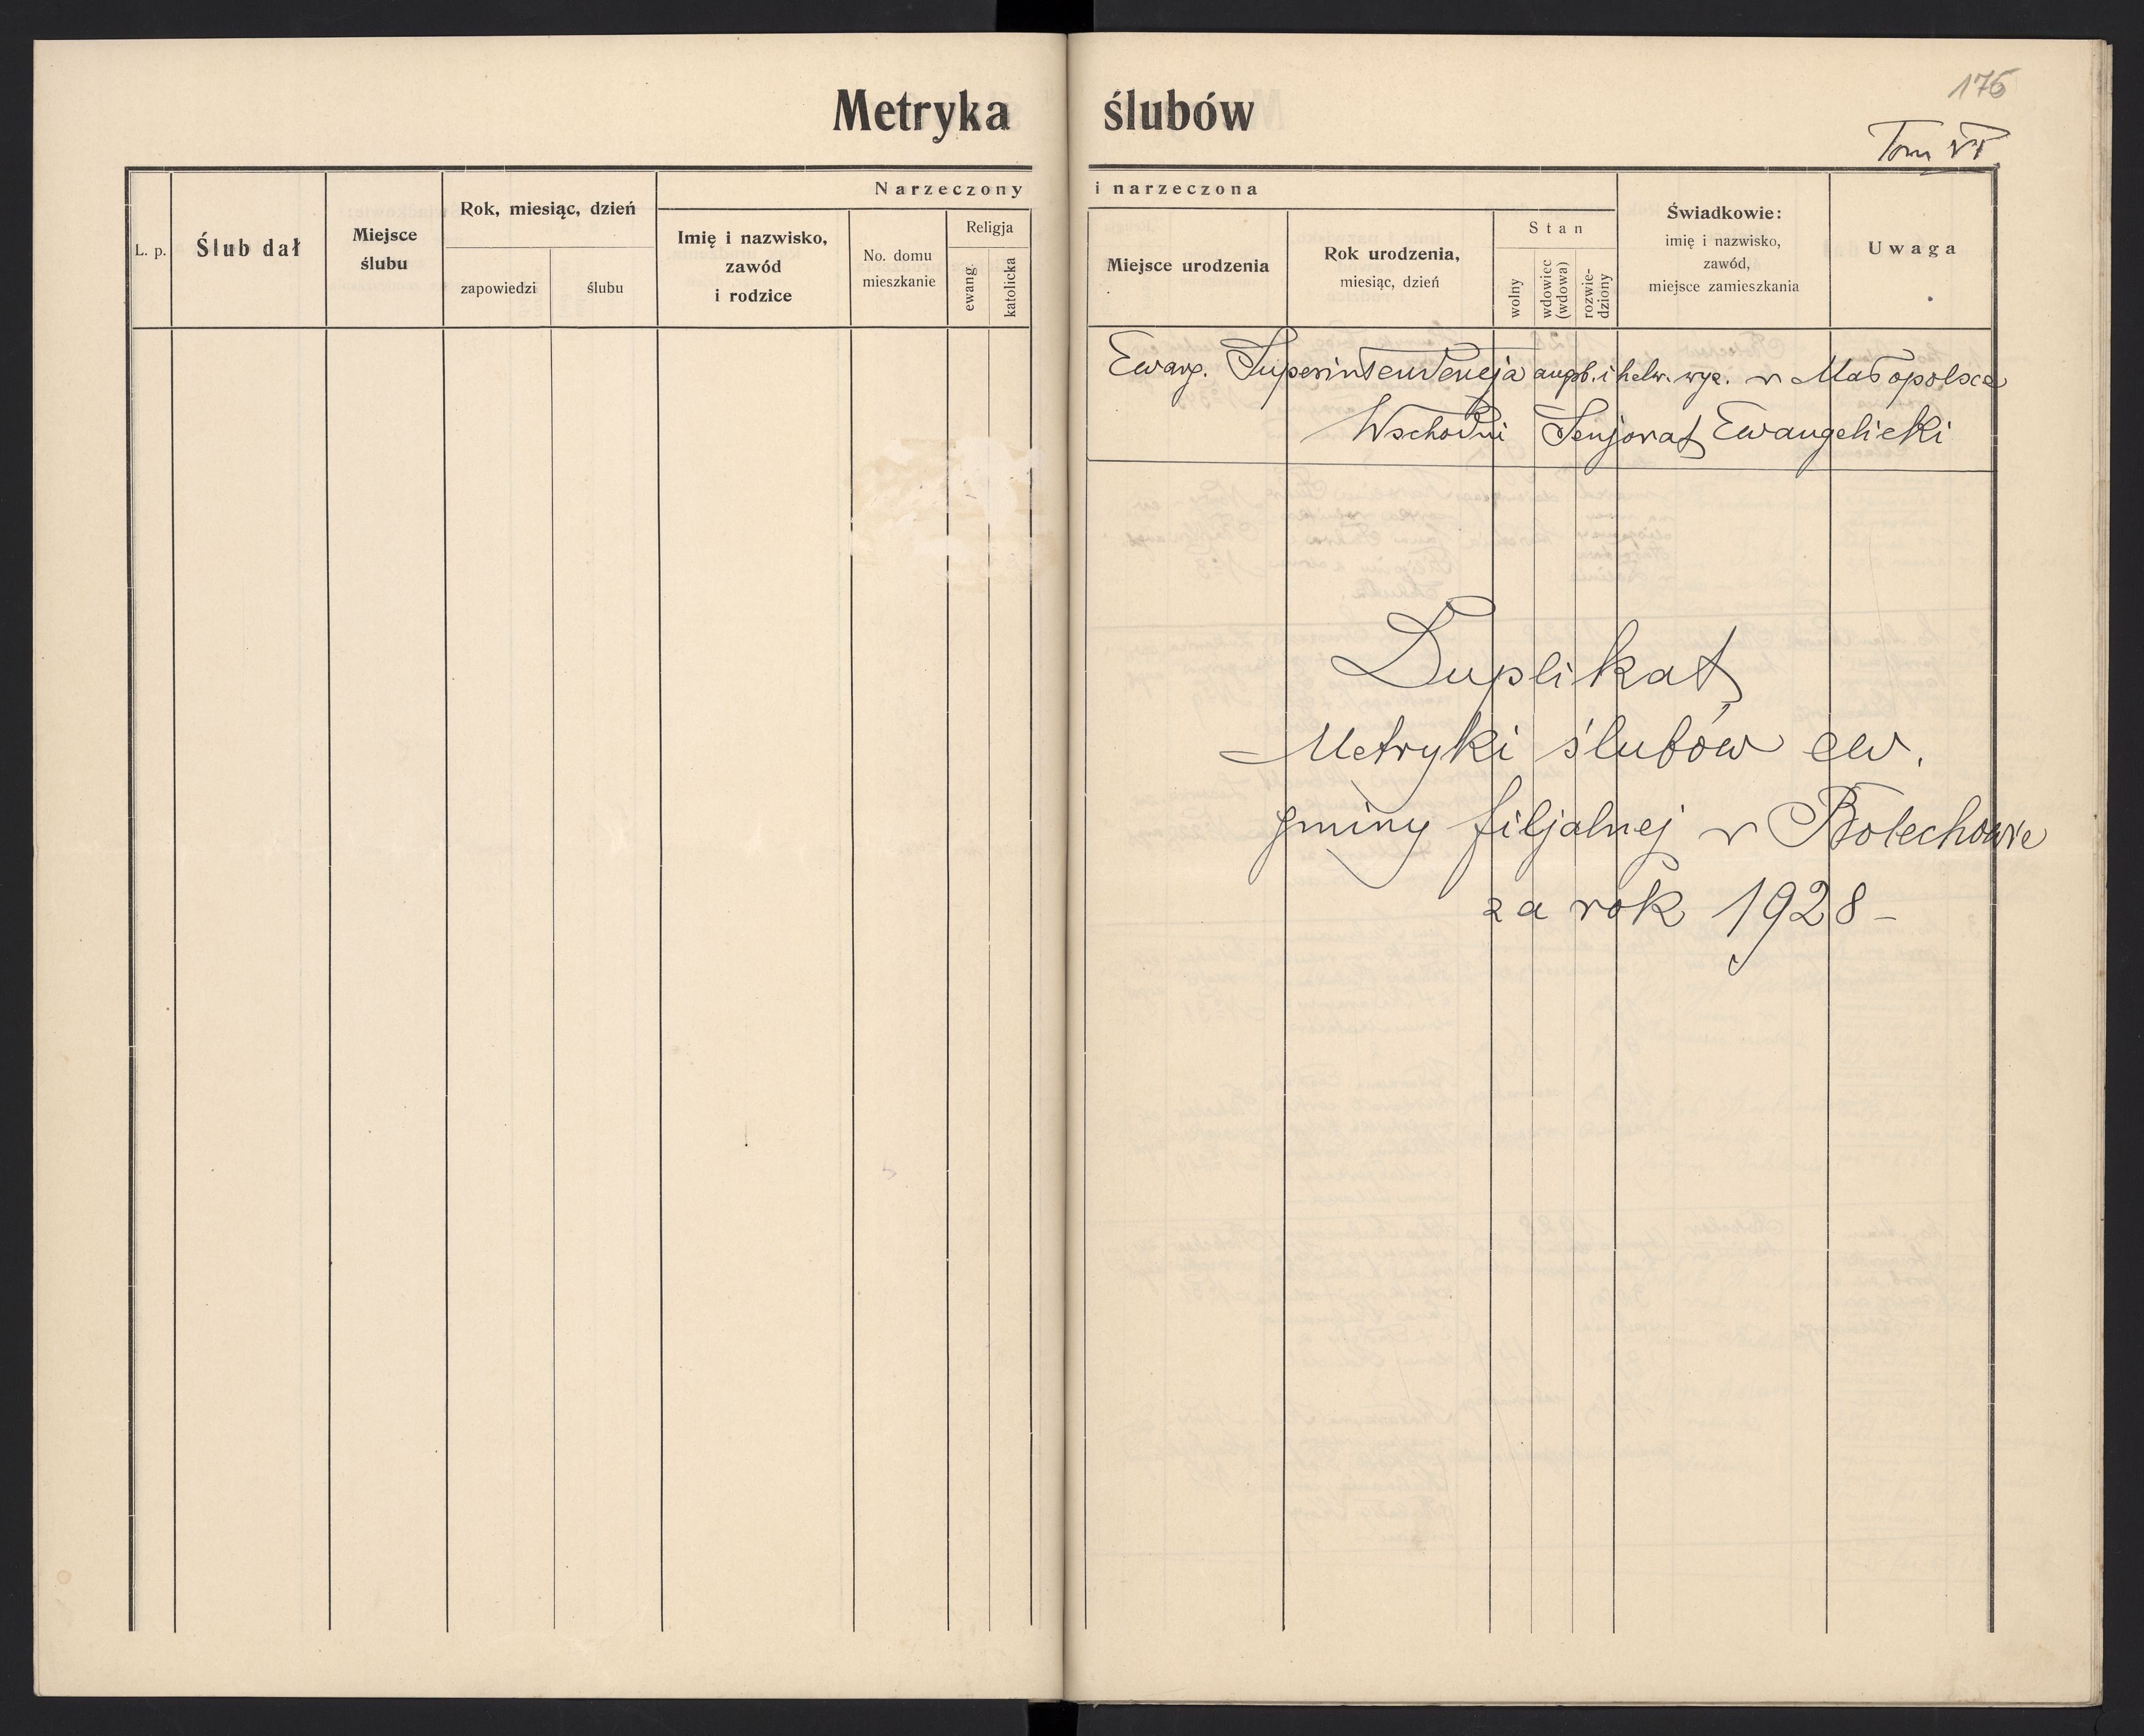 Metryka ślubów
176
Tom VI
L. p.
Ślub dał
Miejsce
ślubu
Rok, miesiąc, dzień
zapowiedzi
ślubu
Narzeczony i narzeczona
Imię i nazwisko,
zawód
i rodzice
No. domu
mieszkanie
Religja
ewang.
katolicka
Miejsce urodzenia
Rok urodzenia,
miesiąc, dzień
Stan
wolny
wdowiec
(wdowa)
rozwie-
dziony
Świadkowie:
imię i nazwisko,
zawód,
miejsce zamieszkania
Uwaga
Ewang. Superintendencja augsb. i helw. wyz. w Małopolsce
Wschodni Senjorat Ewangelicki
Duplikat
Metryki ślubów ew.
gminy filjalnej w Bolechowie
za rok 1928 –